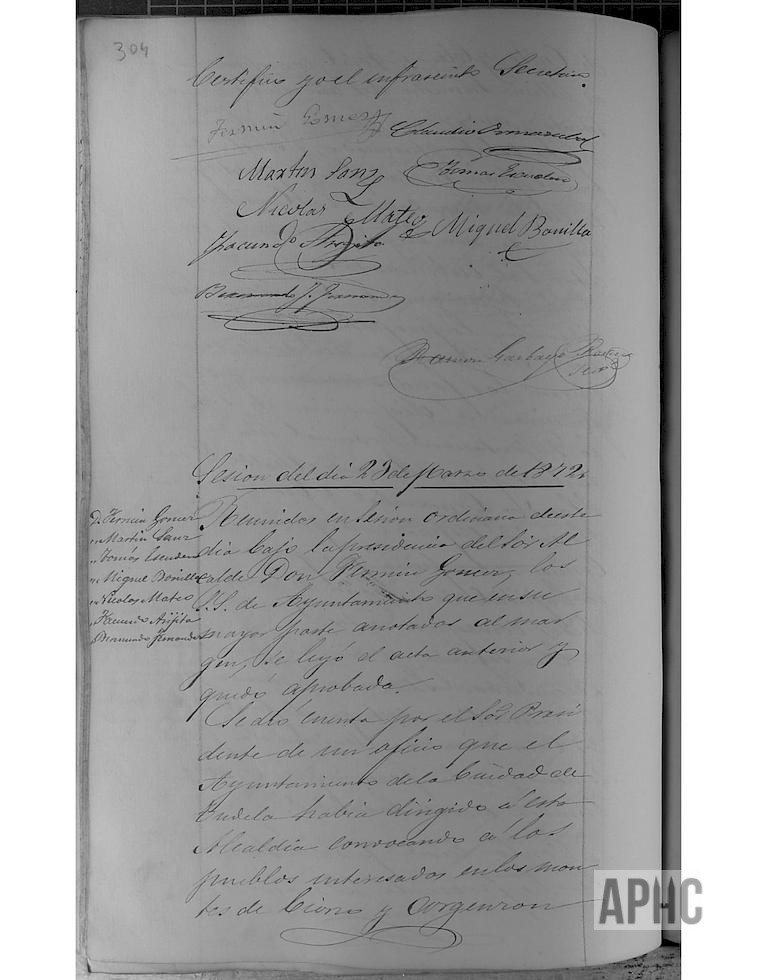 304
Certifico yo el infrascrito Secretario.
Fermin Gomez
Claudio
Martin Sanz
Tomás Escudero
Nicolas Mateo
Miguel Bonilla
Facundo Arpita
Bermundo J. Fernandez
Ramon Garbayo
Srio
Sesion del dia 23 de Marzo de 1872.
D. Fermin Gomez
" Martin Sanz
" Tomás Escudero
" Miguel Bonilla
" Nicolas Mateo
" Facundo Arpita
" Bermundo Fernandez
Reunidos en sesion ordinaria de este
dia bajo la presidencia del Sor. Al
calde Don Fermin Gomez, los
S.S. de Ayuntamiento que en su
mayor parte anotados al mar
gen, se leyó el acta anterior y
quedó aprobada.
Se dió cuenta por el Sor. Presi
dente de un oficio que el
Ayuntamiento de la Ciudad de
Tudela habia dirigido á esta
Alcaldia convocando á los
pueblos interesados en los mon
tes de Cierzo y Argenzon
APHC